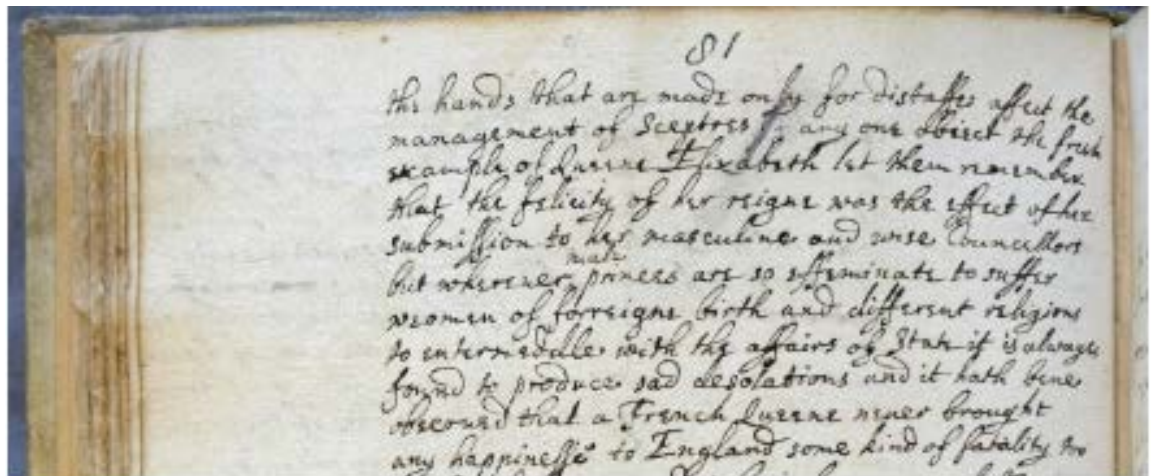 81
the hands that are made only for distaffes affect the
management of Sceptres If any one obiect the fresh
example of Queene Elizabeth let them remember
that the felicity of her reigne was the effect of her
submission to her masculine and wise Councellors
male
but wherever princes are so effeminate to suffer
weomen of forreigne birth and different religions
to entermeddle with the affairs of State it is alwayes
found to produce sad desolations and it hath bene
observed that a French Queene never brought
any happinesse to England some kind of fatality too